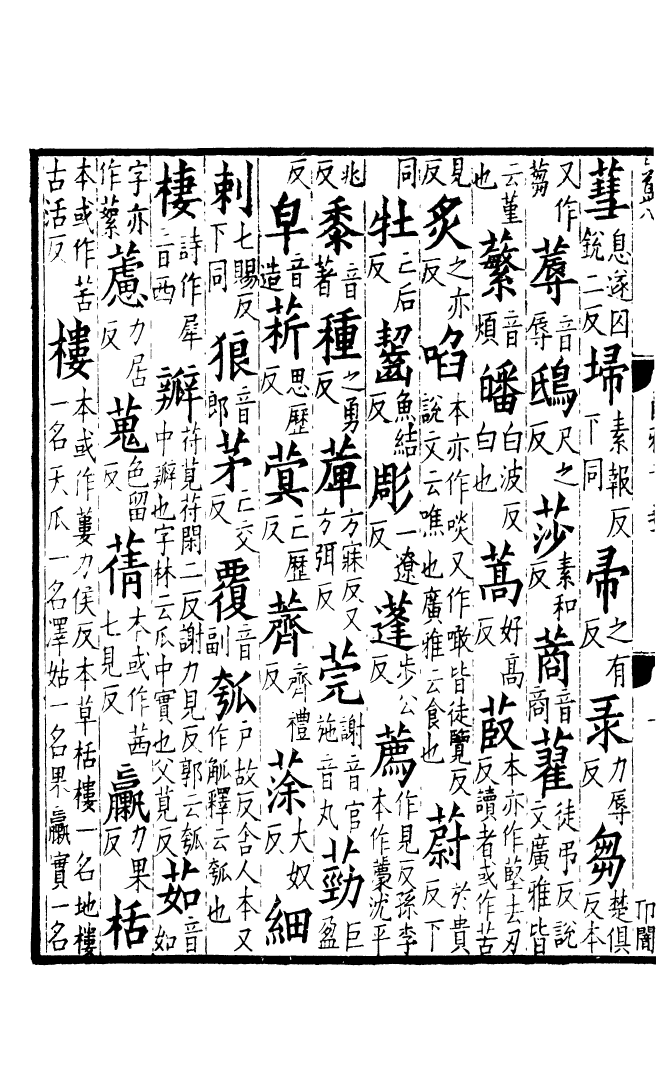 蔧息遂囚銳二反埽素報反下同帚之有反豖力辱反芻楚俱反本
又作蒭蓐音辱鴟尺之反莎素和反蔏音商藋徒弔反說文廣雅皆
云堇也蘩音煩皤白波反白也蒿好高反菣本亦作堅去刃反讀者或作苦
見反炙之亦反啗本亦作啖又作噉皆徒覽反說文云噍也廣雅云食也蔚於貴反下
同牡亡后反齧魚結反彫一遼反蓬步公反薦作見反孫李本作藨沈平
兆反黍音著種之勇反蓽方寐反又方弭反莞謝音官施音丸茎巨盈
反皁音造菥思歷反蓂亡歷反薺齊禮反蒤大奴反細
刺七賜反下同狼音郎茅亡交反覆音副瓠戶故反舍人本又作觚釋云瓠也
棲詩作犀音西瓣苻莧苻閑二反謝力見反郭云瓠中瓣也字林云瓜中實也父莧反茹音如
字亦作蔂藘力居反蒐色留反蒨本或作茜七見反臝力果反栝
本或作苦古活反樓本或作蔞力侯反本草栝樓一名地樓一名天瓜一名澤姑一名果臝實一名